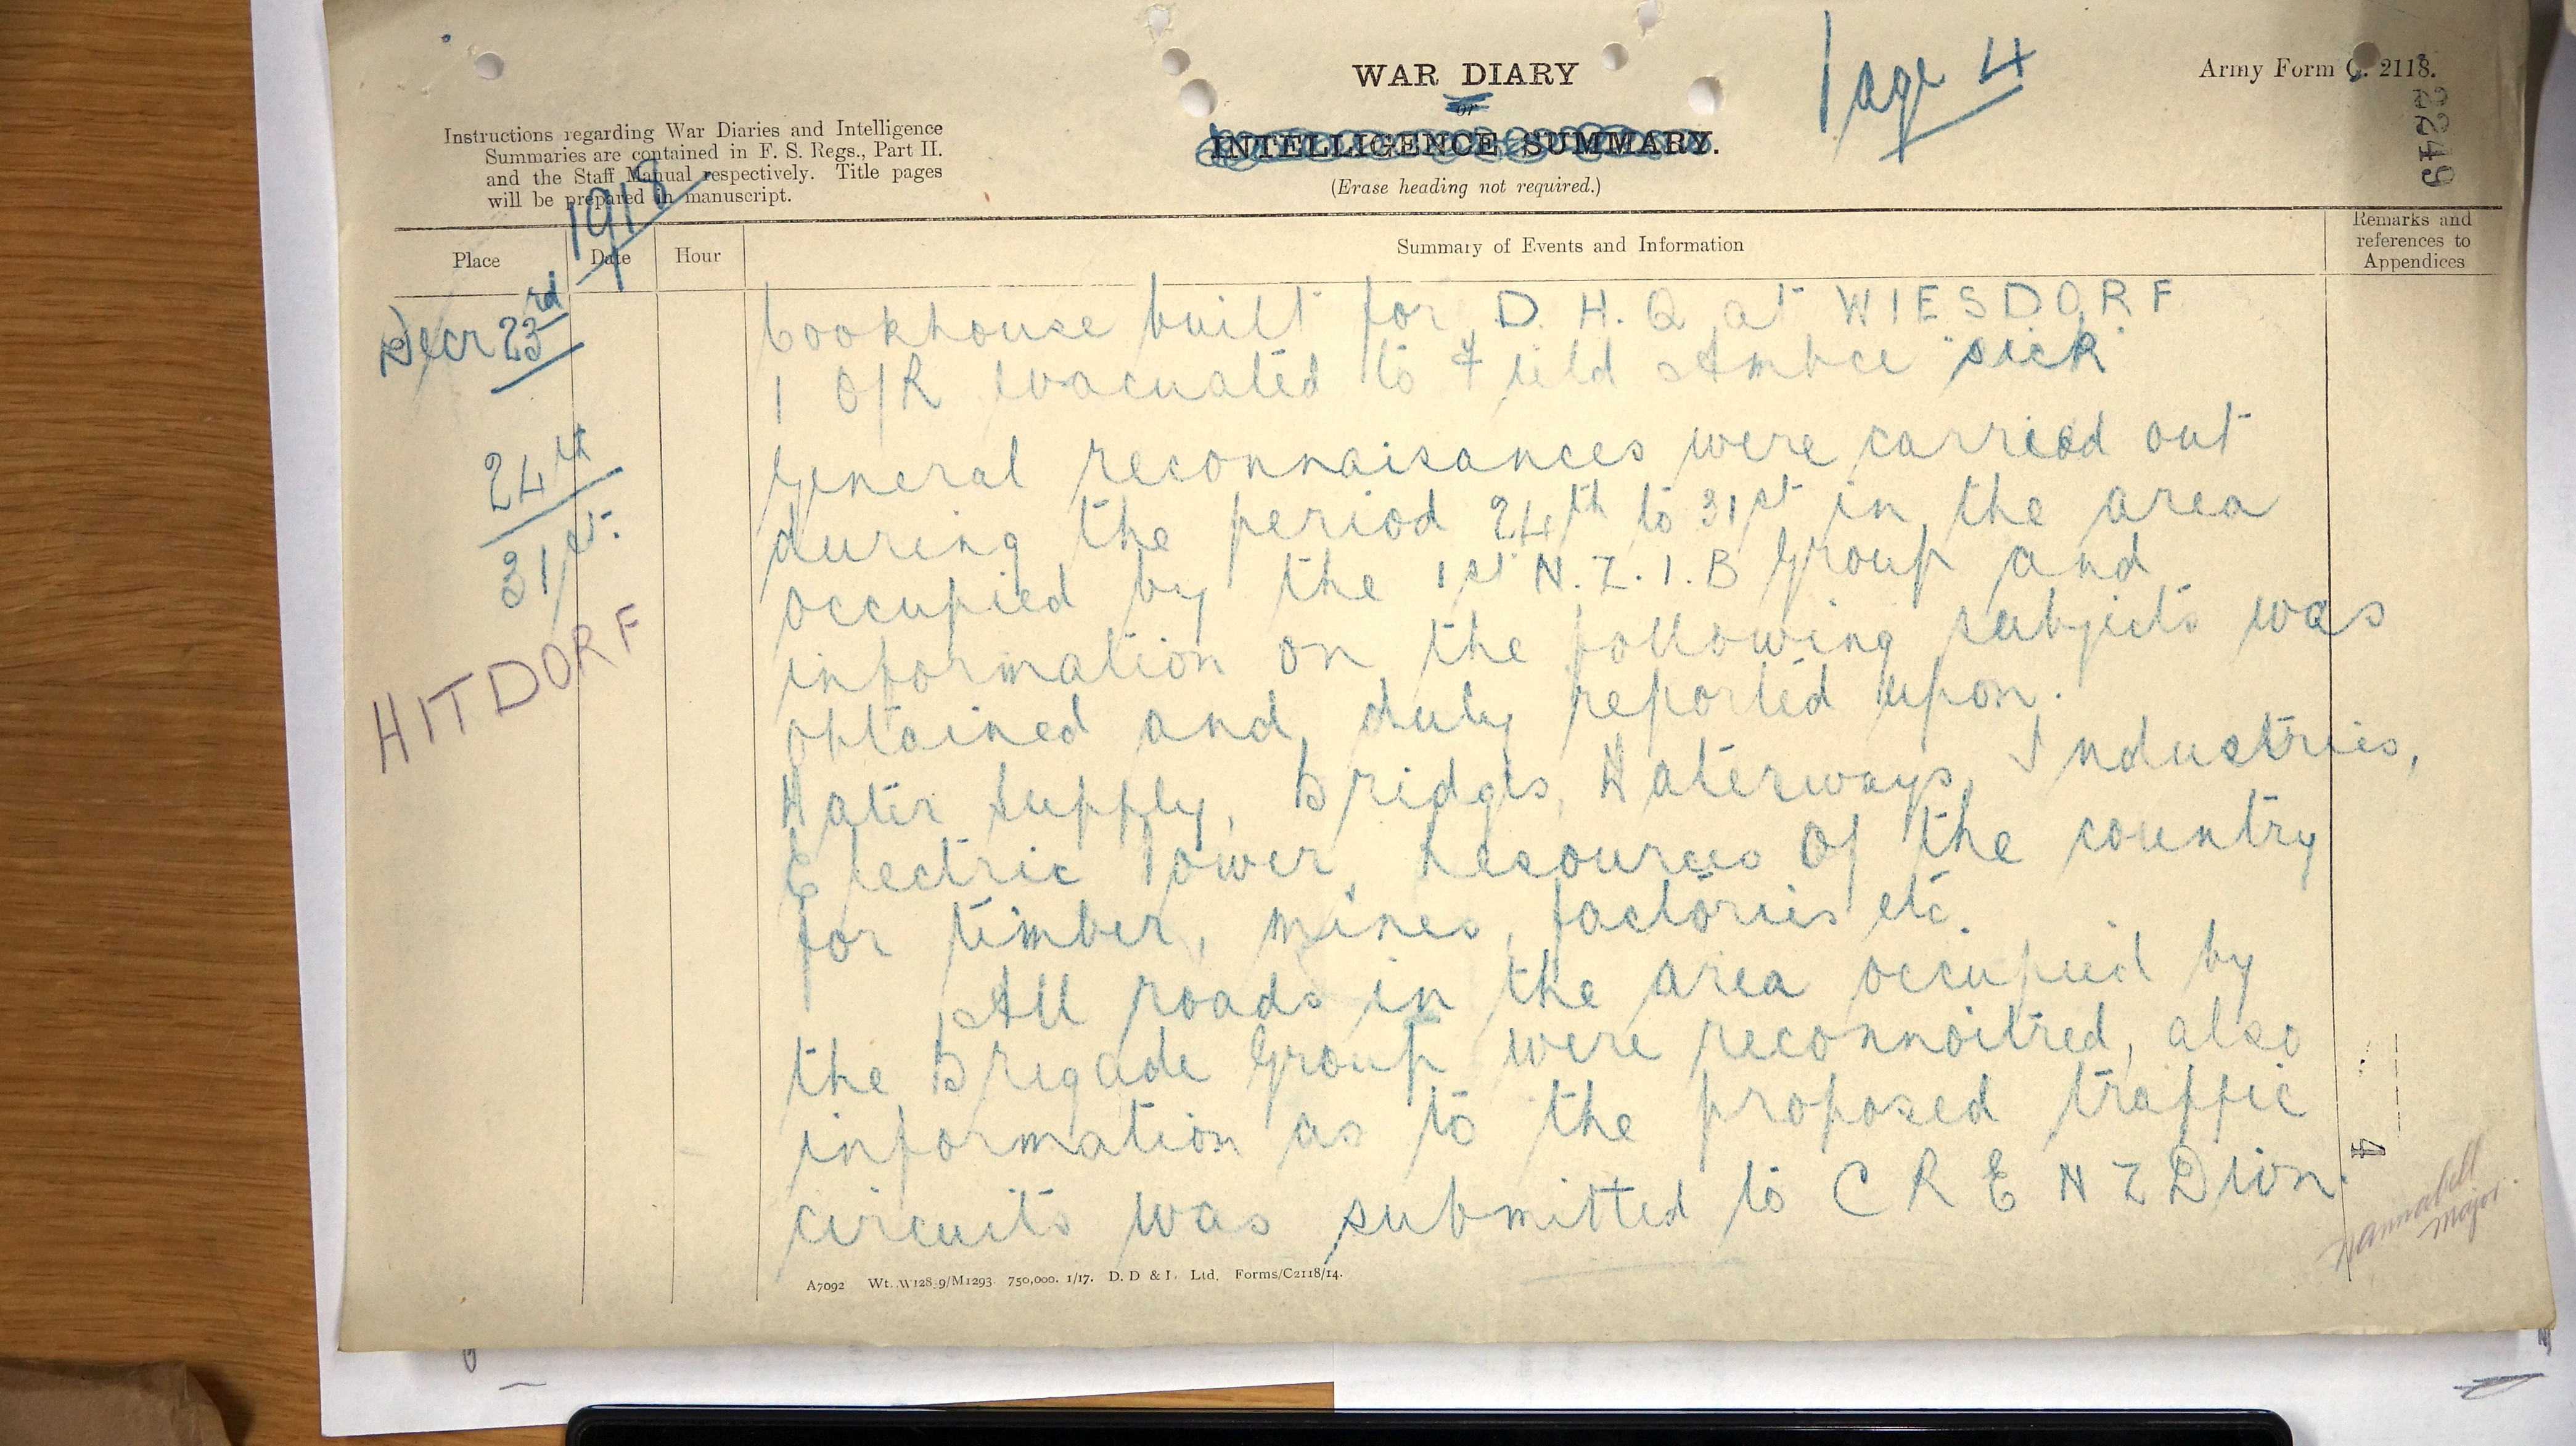 WAR DIARY
or
INTELLIGENCE SUMMARY.
(Erase heading not required.)
Page 4
Army Form C. 2118.
Instructions regarding War Diaries and Intelligence
Summaries are contained in F. S. Regs., Part II.
and the Staff Manual respectively. Title pages
will be prepared in manuscript.
1918
Place
Date
Hour
Summary of Events and Information
Remarks and
references to
Appendices
Decr 23rd
Cookhouse built for D. H. Q at WIESDORF
1 O/R evacuated to Field Ambce "sick"
24th
31st.
HITDORF
General reconnaisances were carried out
during the period 24th to 31st in the area
occupied by the 1st N. Z. I. B Group and
information on the following subjects was
obtained and duly reported upon.
Water Supply, Bridges, Waterways, Industries,
Electric Power, Resources of the country
for timber, mines, factories etc.
All roads in the area occupied by
the Brigade Group were reconnoitred, also
information as to the proposed traffic
circuits was submitted to C R E N Z Divn.
4
Major.
A7092 Wt. W128 9/M1293 750,000. 1/17. D. D & L Ltd. Forms/C2118/14.